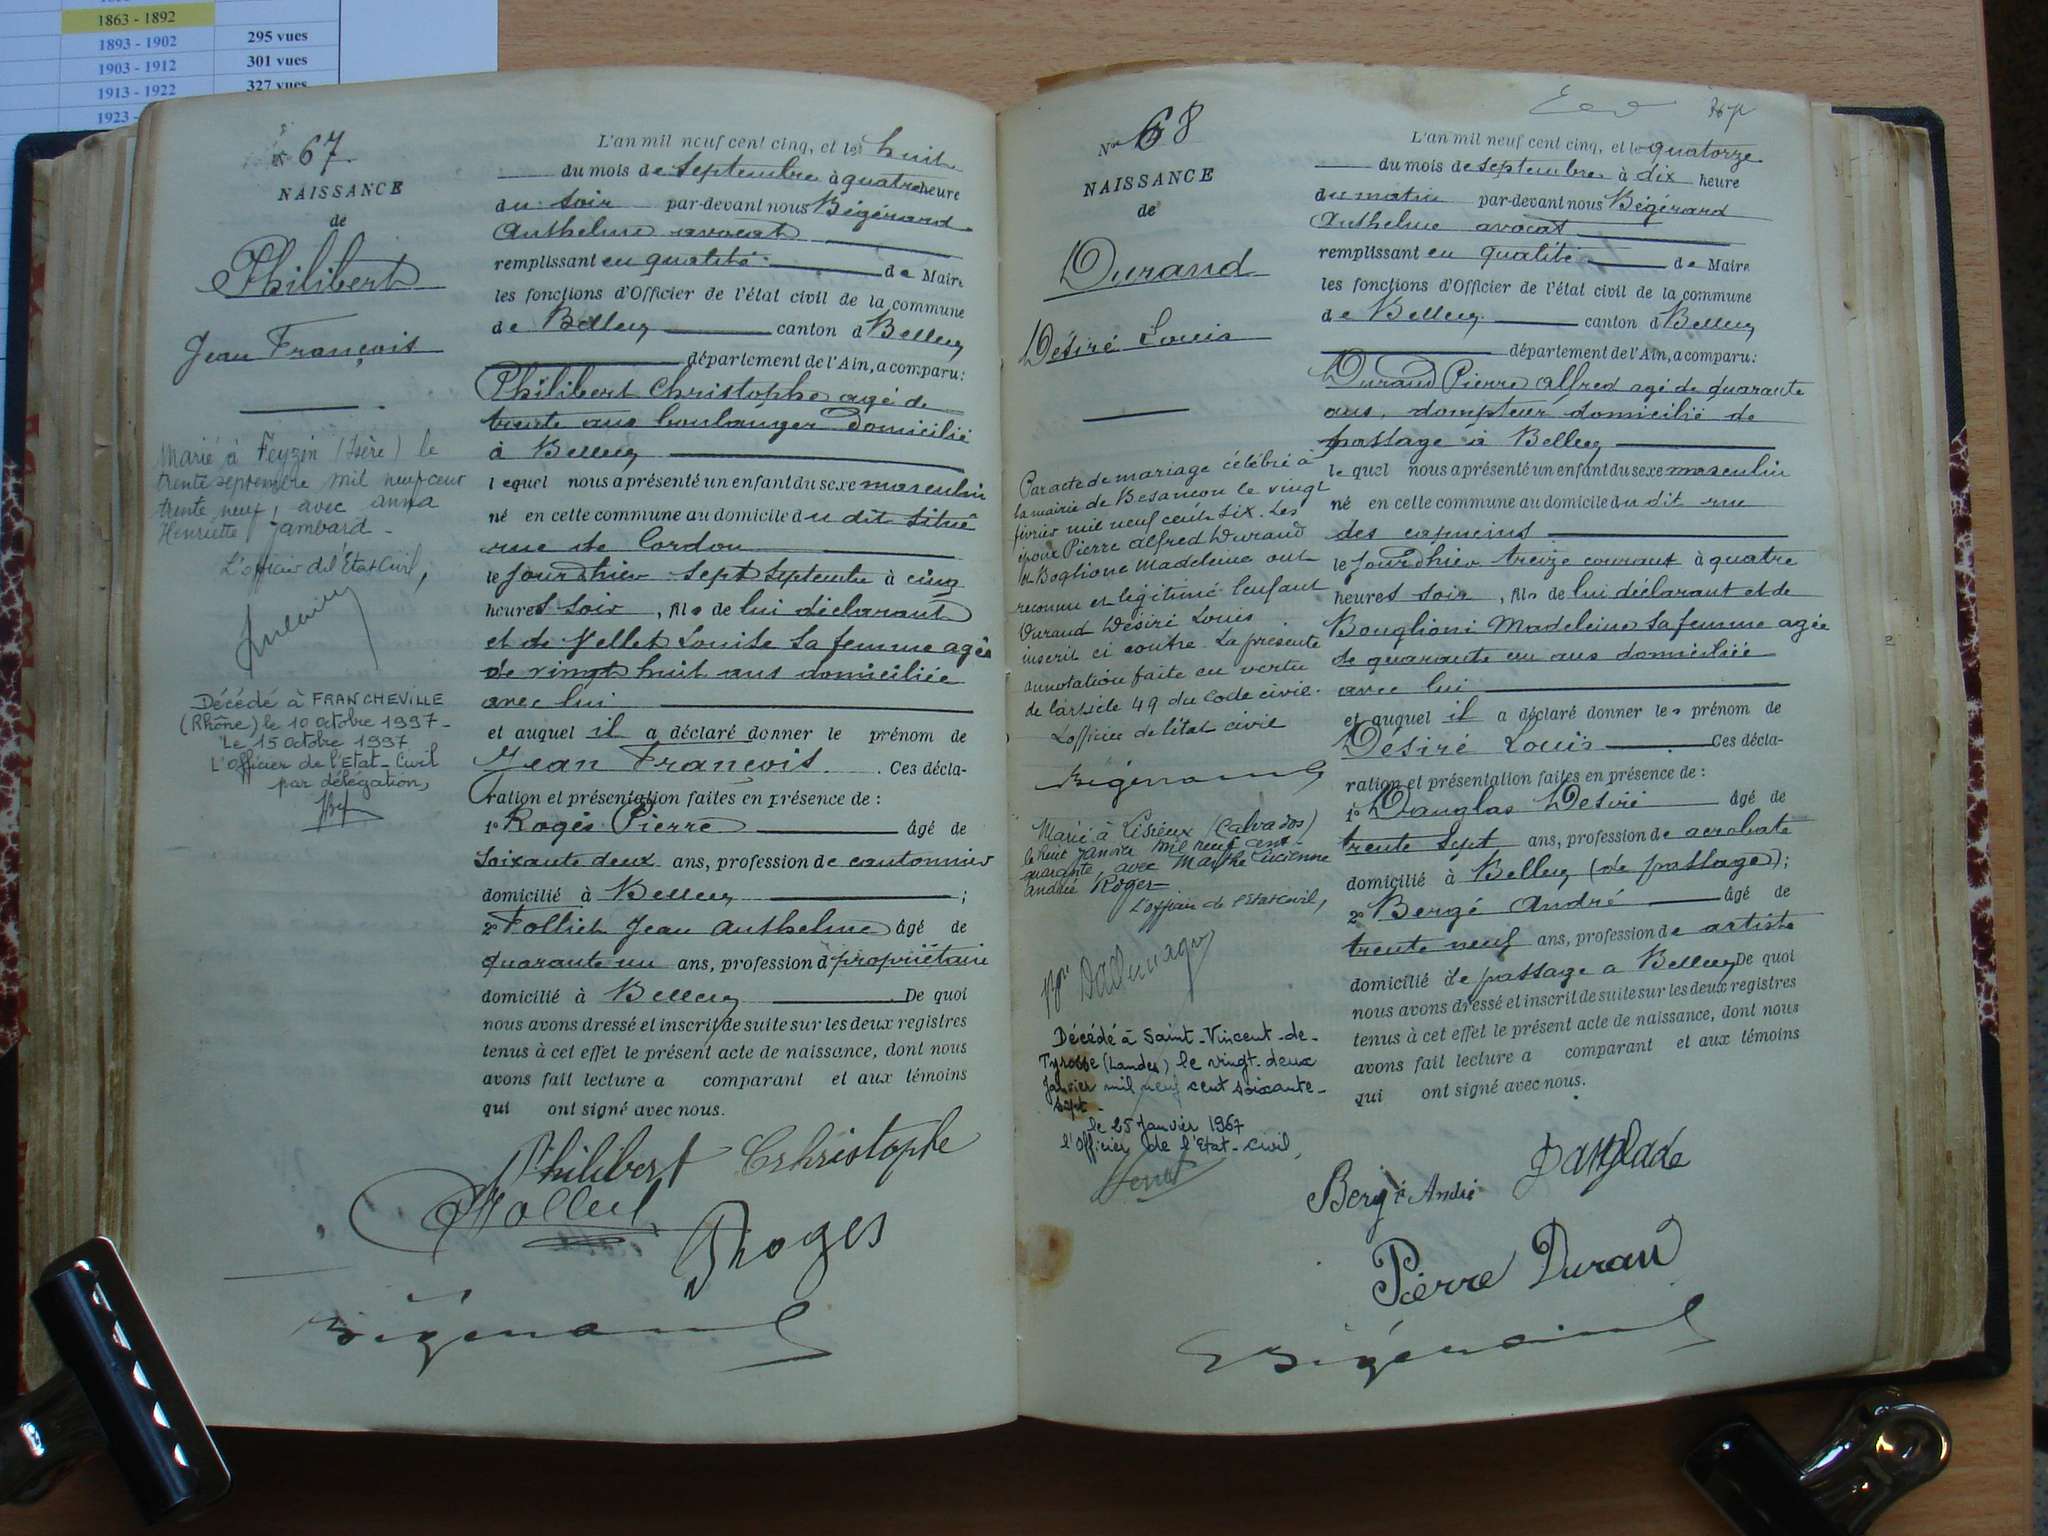 1863 - 1892
1893 - 1902 295 vues
1903 - 1912 301 vues
1913 - 1922 327 vues
1923 -
67
NAISSANCE
de
Philibert
Jean François
Marié à Feyzin (Isère) le
trente septembre mil neuf cent
trente neuf, avec Anna
Henriette Jambard -
L'officier de l'Etat Civil,
Décédé à FRANCHEVILLE
(Rhône) le 10 octobre 1997 -
Le 15 octobre 1997
L'Officier de l'Etat-Civil
par délégation,
L'an mil neuf cent cinq, et le huit
du mois de Septembre à quatre heure
du soir par-devant nous Bégérard
Anthelme avocat
remplissant en qualité de Maire
les fonctions d'Officier de l'état civil de la commune
de Belley canton d Belley
département de l'Ain, a comparu :
Philibert Christophe agé de
trente ans boulanger domicilié
à Belley
lequel nous a présenté un enfant du sexe masculin
né en cette commune au domicile du dit situé
rue de Cordon
le jourdhier sept septembre à cinq
heures soir, fils de lui déclarant
et de Vellet Louise sa femme agée
de vingt huit ans domiciliée
avec lui
et auquel il a déclaré donner le prénom de
Jean François. Ces décla-
ration et présentation faites en présence de :
1° Rogès Pierre âgé de
soixante deux ans, profession de cantonnier
domicilié à Belley ;
2° Folliet Jean Anthelme âgé de
quarante un ans, profession d propriétaire
domicilié à Belley De quoi
nous avons dressé et inscrit de suite sur les deux registres
tenus à cet effet le présent acte de naissance, dont nous
avons fait lecture a comparant et aux témoins
qui ont signé avec nous.
Philibert Christophe
Roges
Bégérard
N° 68
NAISSANCE
de
Durand
Désiré Louis
Par acte de mariage célébré à
la mairie de Besançon le vingt
février mil neuf cent six. Les
époux Pierre Alfred Durand
et Boglione Madeleine ont
reconnu et légitimé l'enfant
Durand Désiré Louis
inscrit ci contre. La présente
annotation faite en vertu
de l'article 49 du Code civil.
L'officier de l'état civil
Bégérard
Marié à Lisieux (Calvados)
le huit janvier mil neuf cent
quarante, avec Marthe Lucienne
Andrée Roger -
L'officier de l'Etat Civil,
Décédé à Saint-Vincent-de-
Tyrosse (Landes) le vingt-deux
Janvier mil neuf cent soixante-
sept -
le 25 Janvier 1967
l'Officier de l'Etat-Civil,
L'an mil neuf cent cinq, et le quatorze
du mois de septembre à dix heure
du matin par-devant nous Bégérard
Anthelme avocat
remplissant en qualité de Maire
les fonctions d'Officier de l'état civil de la commune
de Belley canton d Belley
département de l'Ain, a comparu :
Durand Pierre Alfred agé de quarante
ans, dompteur domicilié de
passage à Belley
lequel nous a présenté un enfant du sexe masculin
né en cette commune au domicile du dit rue
des capucins
le jourdhier treize courant à quatre
heures soir, fils de lui déclarant et de
Bouglioni Madeleine sa femme agée
de quarante un ans domiciliée
avec lui
et auquel il a déclaré donner les prénom de
Désiré Louis Ces décla-
ration et présentation faites en présence de :
1° Danglas Désiré âgé de
trente sept ans, profession de acrobate
domicilié à Belley (de passage) ;
2° Bergé André âgé de
trente neuf ans, profession de artiste
domicilié de passage a Belley De quoi
nous avons dressé et inscrit de suite sur les deux registres
tenus à cet effet le présent acte de naissance, dont nous
avons fait lecture a comparant et aux témoins
qui ont signé avec nous.
Danglade
Bergé André
Pierre Duran
Bégérard